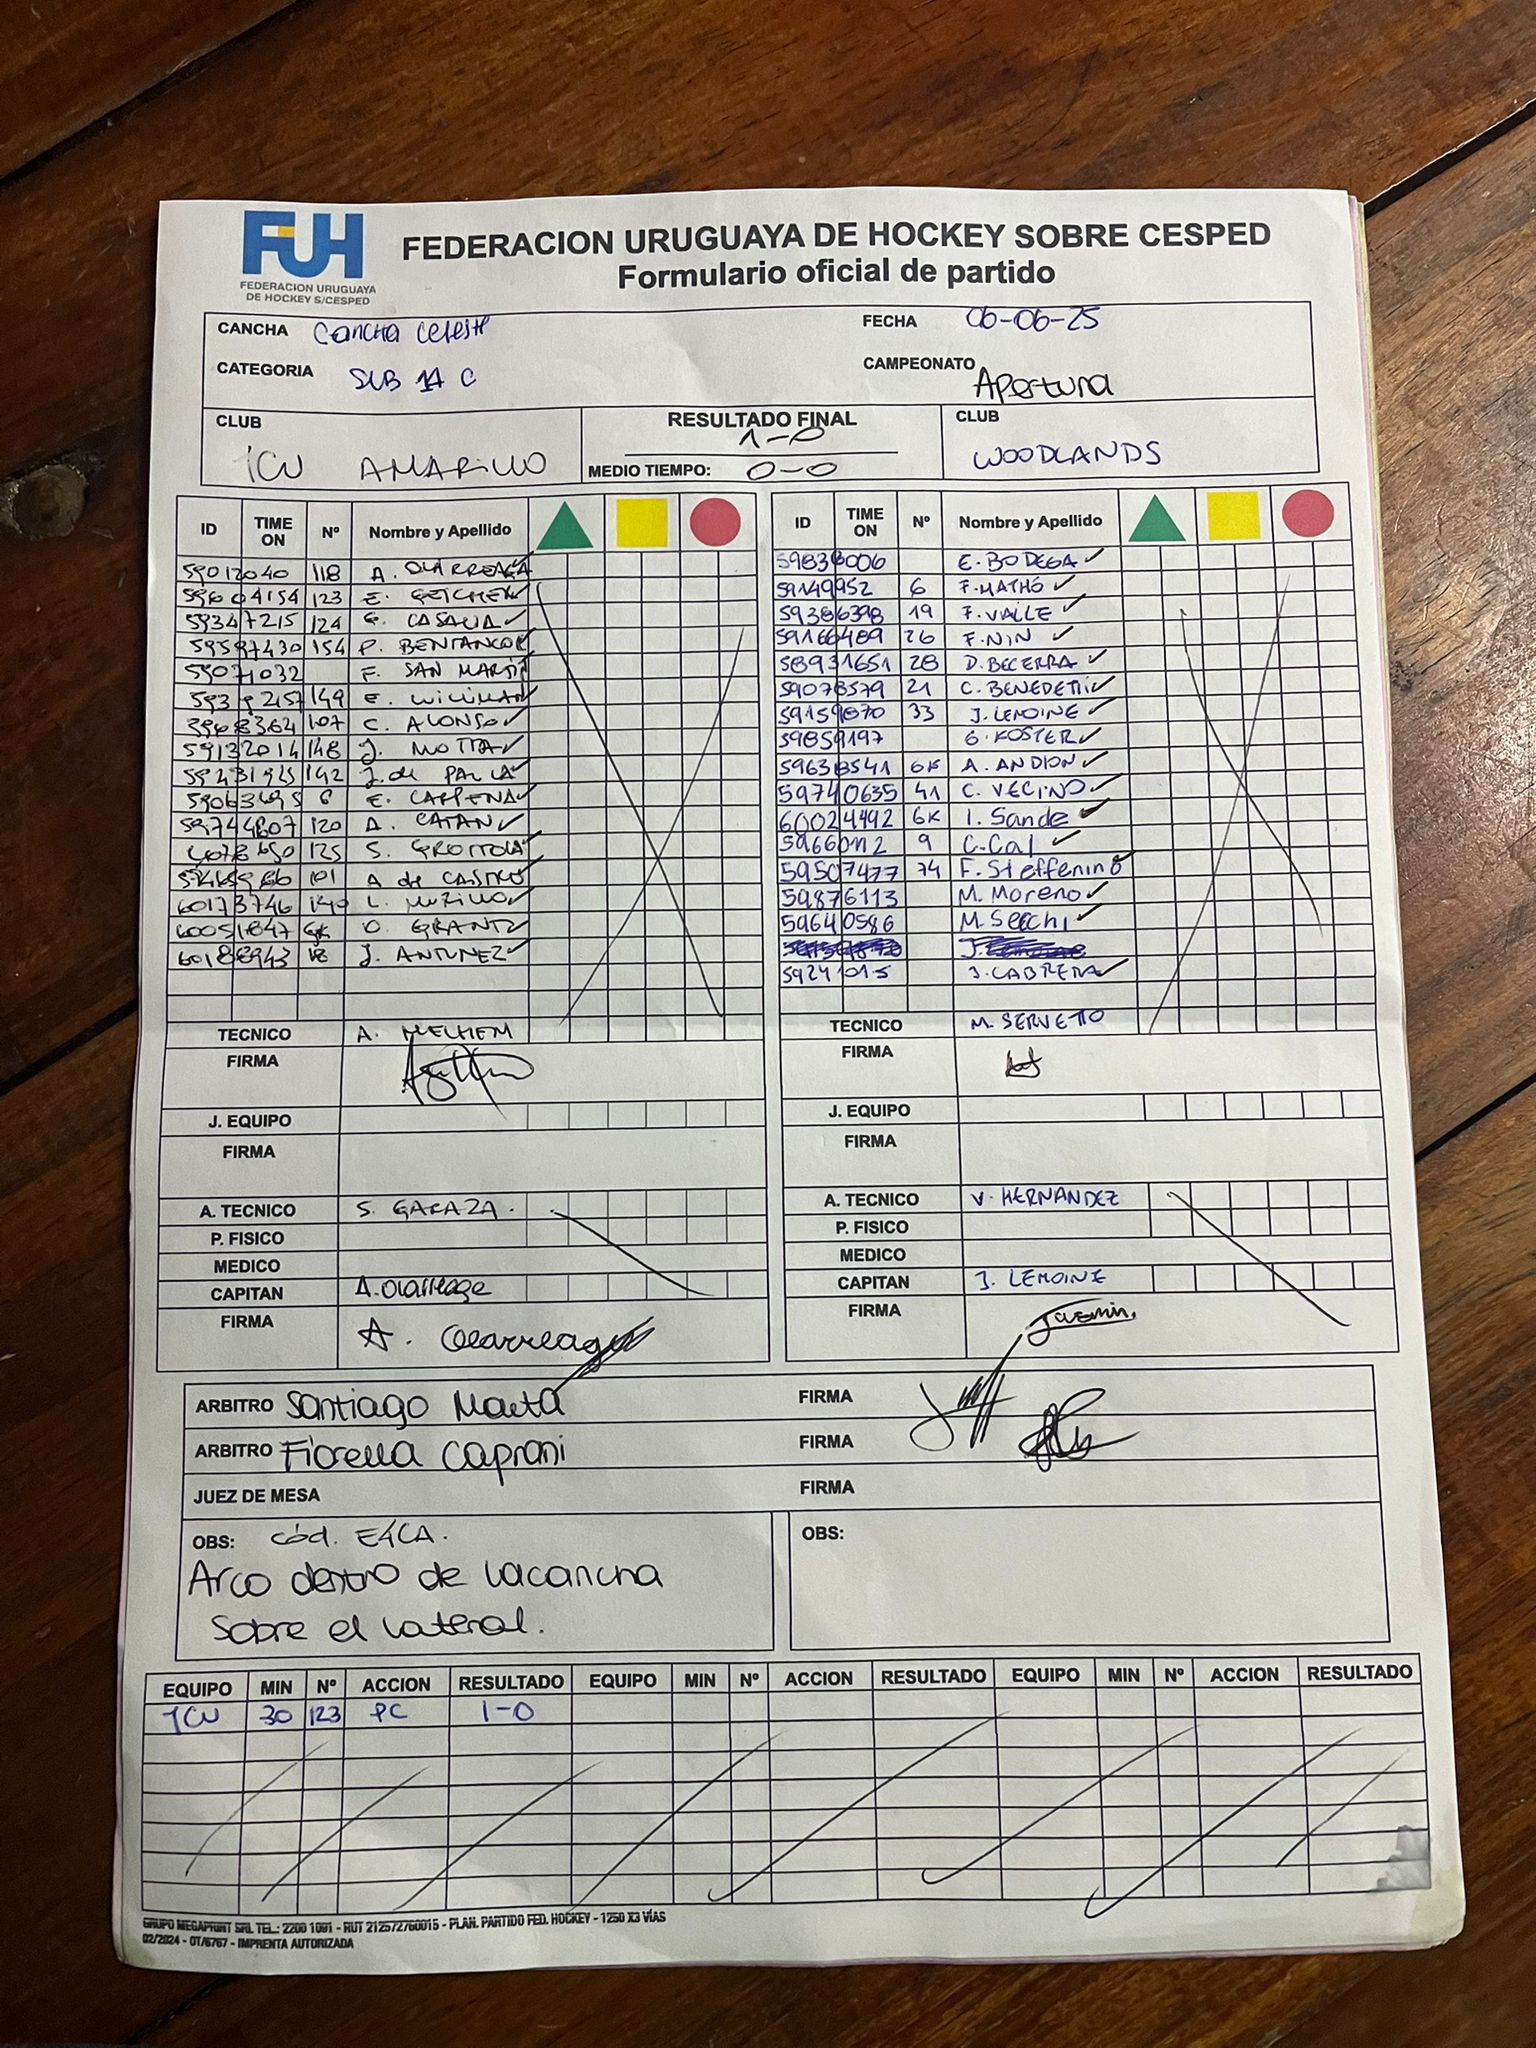 FUH
FEDERACION URUGUAYA
DE HOCKEY S/CESPED
FEDERACION URUGUAYA DE HOCKEY SOBRE CESPED
Formulario oficial de partido
CANCHA Cancha Celeste FECHA 06-06-25
CATEGORIA SUB 14 C CAMPEONATO Apertura
CLUB AMARILLO
RESULTADO FINAL 1-0
MEDIO TIEMPO: 0-0
CLUB WOODLANDS
ID TIME ON Nº Nombre y Apellido
59012040 118 A.
123 E.
59347215 124 CASALIA
154 P. BENTANCOR
F. SAN MARTIN
149 E.
107 C. ALONSO
59132014 148 J. MOTTA
142 J. de
E. CARPENA
120 A. CATAN
125 S. GROTTOLA
101 A de CASTRO
60173746 L.
GK O.
18 J. ANTUNEZ
TECNICO A. MELHEM
FIRMA
J. EQUIPO
FIRMA
A. TECNICO S. GARAZA.
P. FISICO
MEDICO
CAPITAN A. Olarreaga
FIRMA A. Olarreaga
ID TIME ON Nº Nombre y Apellido
E. BODEGA
59149952 6 F. MATHÓ
59386398 19 F. VALLE
59166489 26 F. NIN
58931651 28 D. BECERRA
59078579 21 C. BENEDETTI
59159870 33 J. LEMOINE
59859197 G. KOSTER
59638541 GK A. ANDION
59740635 41 C. VECINO
60024492 GK I. Sande
59660112 9 C. Cal
59507477 74 F. Steffenino
59876113 M. Moreno
59640586 M. Secchi
59241015 J. CABRERA
TECNICO M. SERVETTO
FIRMA
J. EQUIPO
FIRMA
A. TECNICO V. HERNANDEZ
P. FISICO
MEDICO
CAPITAN J. LEMOINE
FIRMA
ARBITRO Santiago FIRMA
ARBITRO Fiorella Caproni FIRMA
JUEZ DE MESA FIRMA
OBS: Cód. E4CA.
Arco dentro de la cancha
sobre el lateral.
OBS:
EQUIPO MIN Nº ACCION RESULTADO EQUIPO MIN Nº ACCION RESULTADO EQUIPO MIN Nº ACCION RESULTADO
30 123 PC 1-0
GRUPO MEGAPRINT SRL TEL.: 2200 1091 - RUT 212572760015 - PLAN. PARTIDO FED. HOCKEY - 1250 X3 VÍAS
02/2024 - OT/6767 - IMPRENTA AUTORIZADA